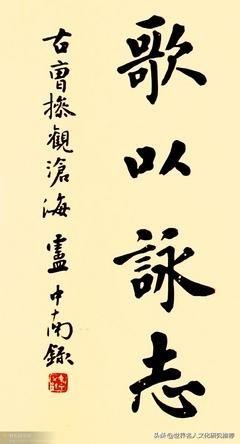 歌以詠志
右曹操觀滄海 盧中南錄
头条 @世界名人文化研究推荐